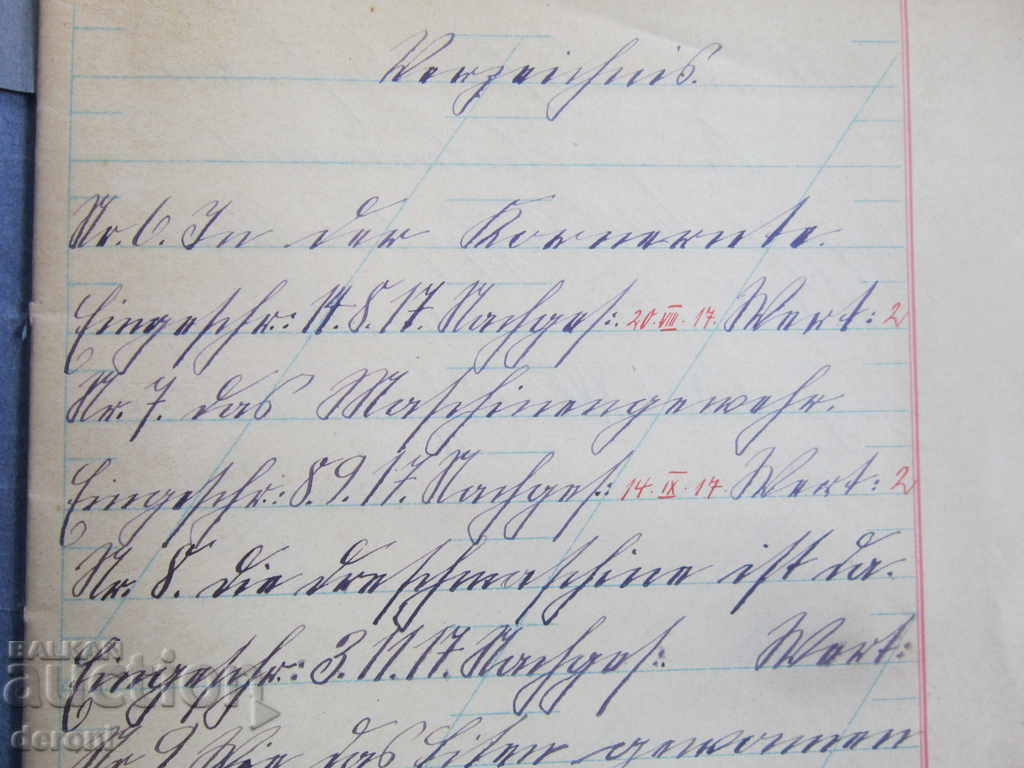 Verzeichnis.
Nr. 6. In der Kornernte.
Eingeschr.: 14.8.17. Nachges.: 20. VIII. 17. Wert: 2
Nr. 7. das Maschinengewehr.
Eingeschr.: 8.9.17. Nachges.: 14. IX. 17. Wert: 2
Nr. 8. die dreschmaschine ist da.
Eingeschr.: 3.11.17. Nachges.: Wert:
Nr. 9. Wie das Eisen gewonnen
BALKAN
auction
deroni